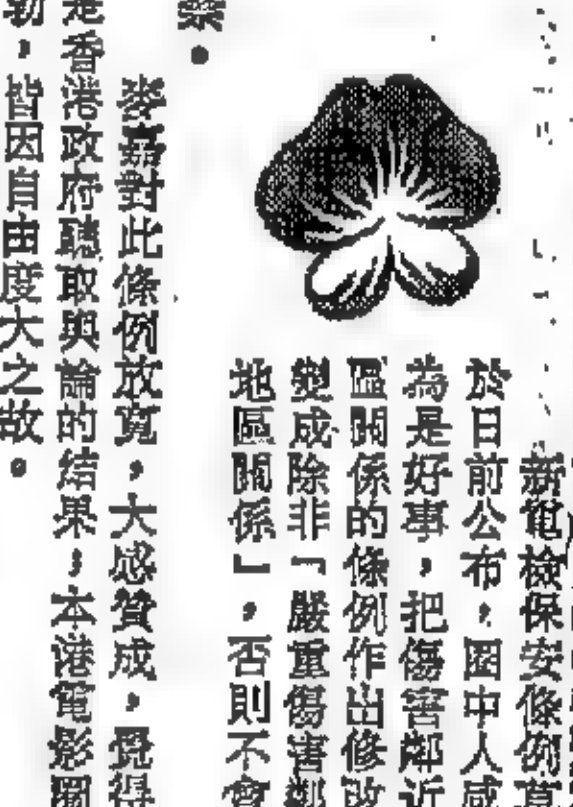 新電檢保安條例草
於日前公布，圈中人咸
為是好事，把傷害鄰近
區關係的條例作出修改
變成除非「嚴重傷害鄰
地區關係」，否則不會
樂。
麥嘉對此條例放寬，大感贊成，覺得
是香港政府聽取輿論的结果，本港電影圈
勃，皆因自由度大之故。